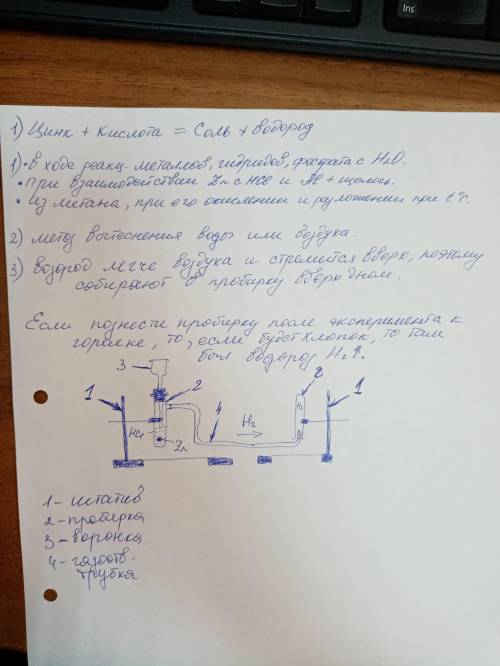 Ins
1) Цинк + кислота = Соль + водород
1) • В ходе реакц. металлов, гидридов, фосфата с H₂O.
• При взаимодействии Zn с HCl и Al + щелочь.
• Из метана, при его окислении и разложении при t°C.
2) метод вытеснения воды или воздуха.
3) водород легче воздуха и стремится вверх, поэтому
собирают в пробирку вверх дном.
Если поднести пробирку после эксперимента к
горелке, то, если будет хлопок, то там
был водород H₂↑.
3
1
2
4
H₂
2
1
HCl
Zn
H₂
1 - штатив
2 - пробирка
3 - воронка
4 - газоотв.
трубка